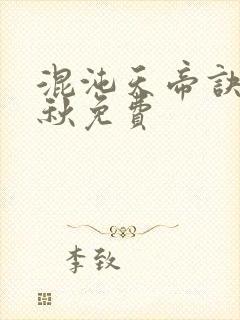 混沌天帝訣
秋免費
李致